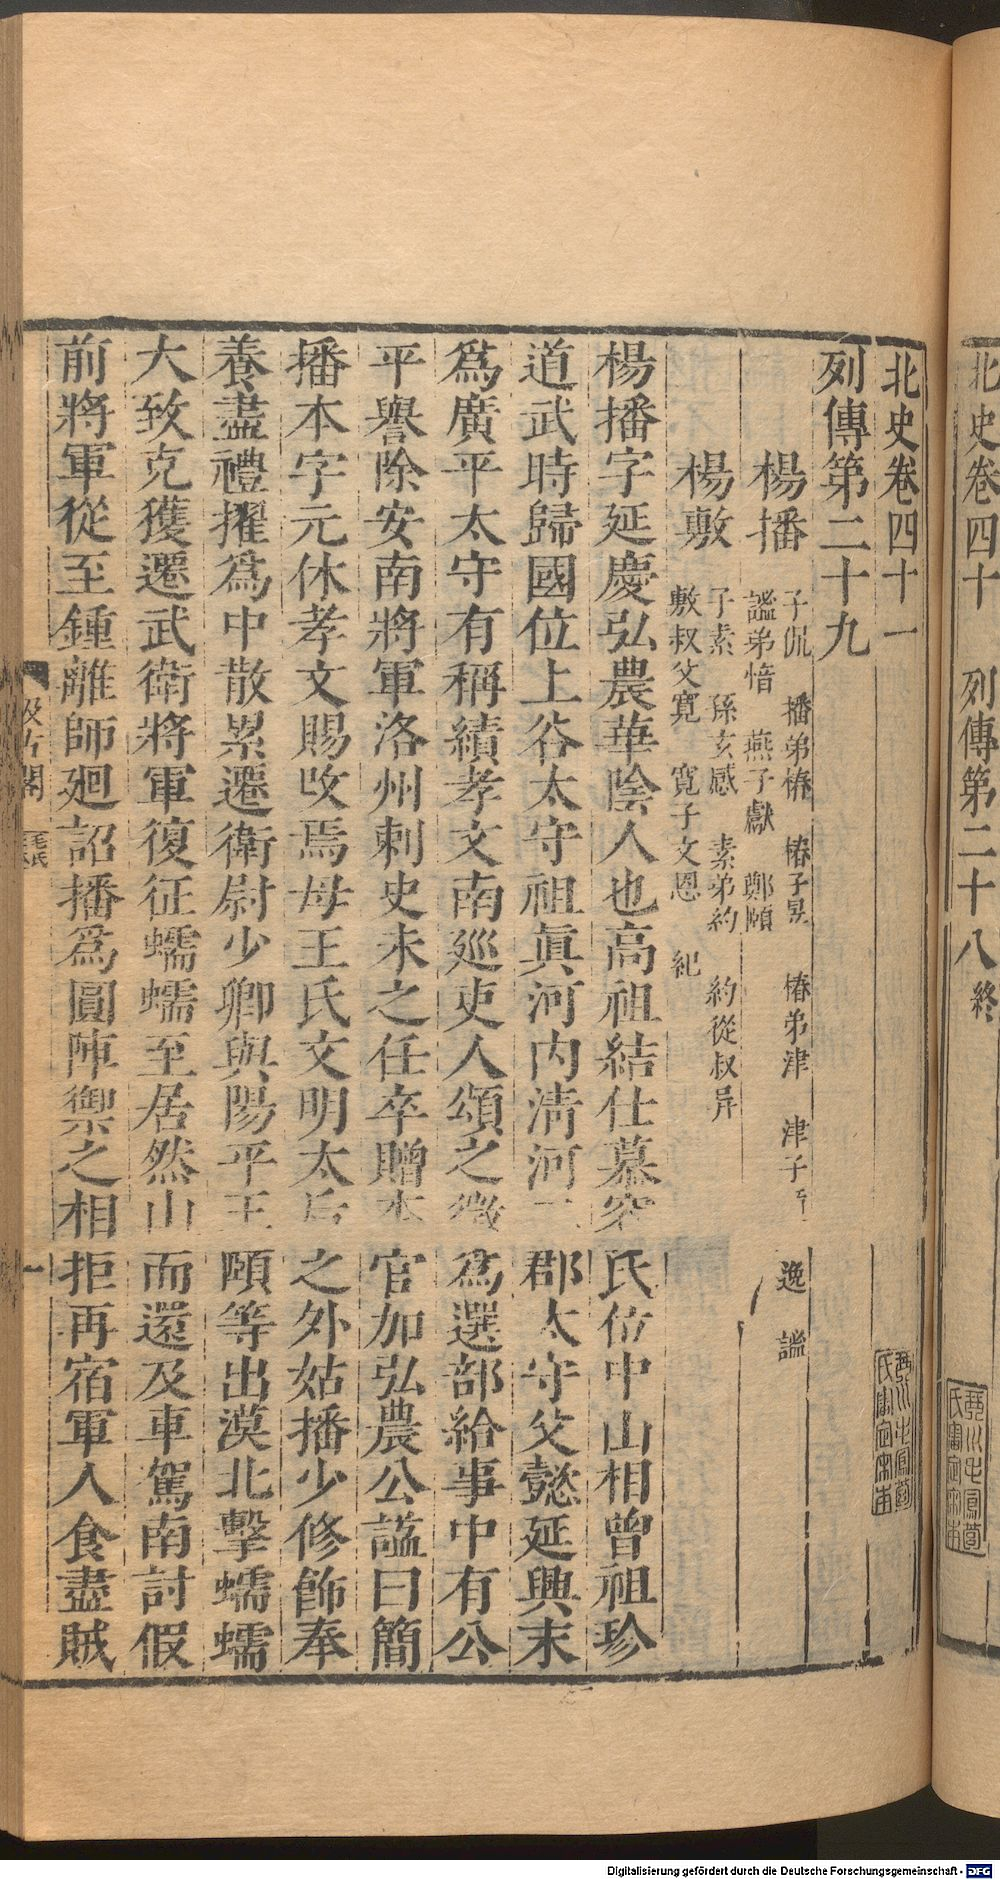 北史卷四十　列傳第二十八終
北史卷四十一
列傳第二十九
楊播　子侃　播弟椿　椿子昱　椿弟津　津子　逸　謐
謐弟愔　燕子獻　鄭頤
楊敷　子素　孫玄感　素弟約　約從叔异
敷叔父寬　寬子文恩　紀
楊播字延慶弘農華陰人也高祖結仕慕容氏位中山相曾祖珍
道武時歸國位上谷太守祖真河内清河二郡太守父懿延興末
爲廣平太守有稱績孝文南巡吏人頌之徵爲選部給事中有公
平譽除安南將軍洛州刺史未之任卒贈本官加弘農公諡曰簡
播本字元休孝文賜改焉母王氏文明太后之外姑播少修飾奉
養盡禮擢爲中散累遷衛尉少卿與陽平王頤等出漠北擊蠕蠕
大致克獲遷武衛將軍復征蠕蠕至居然山而還及車駕南討假
前將軍從至鍾離師廻詔播爲圓陣禦之相拒再宿軍人食盡賊
汲古閣　毛氏
一
Digitalisierung gefördert durch die Deutsche Forschungsgemeinschaft - DFG